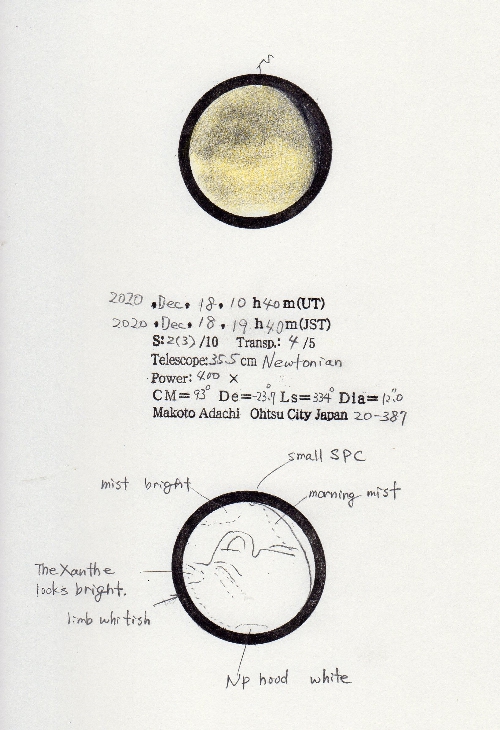 S
2020 .Dec. 18. 10 h40m(UT)
2020 .Dec. 18. 19 h40m(JST)
S:2(3)/10 Transp.: 4 /5
Telescope:35.5cm Newtonian
Power: 400 ×
CM=93° De=-23.7° Ls=334° Dia=12."0
Makoto Adachi Ohtsu City Japan 20-387
small SPC
mist bright
morning mist
The Xanthe
looks bright.
limb whitish
Np hood white